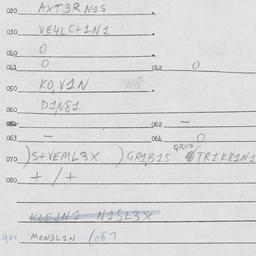 020. AXT3RN1S
030. VE4LC+1N1
040. 0
041. 0 042. 0
050. KO,V1N
060. D1N81
062. —
063. — 064. 0
070. )S+VEML3X )GR1B1S QRUS TR1K81N1
080. + / +
KLEJN1 N1SL3X
900. MONDL1N /067